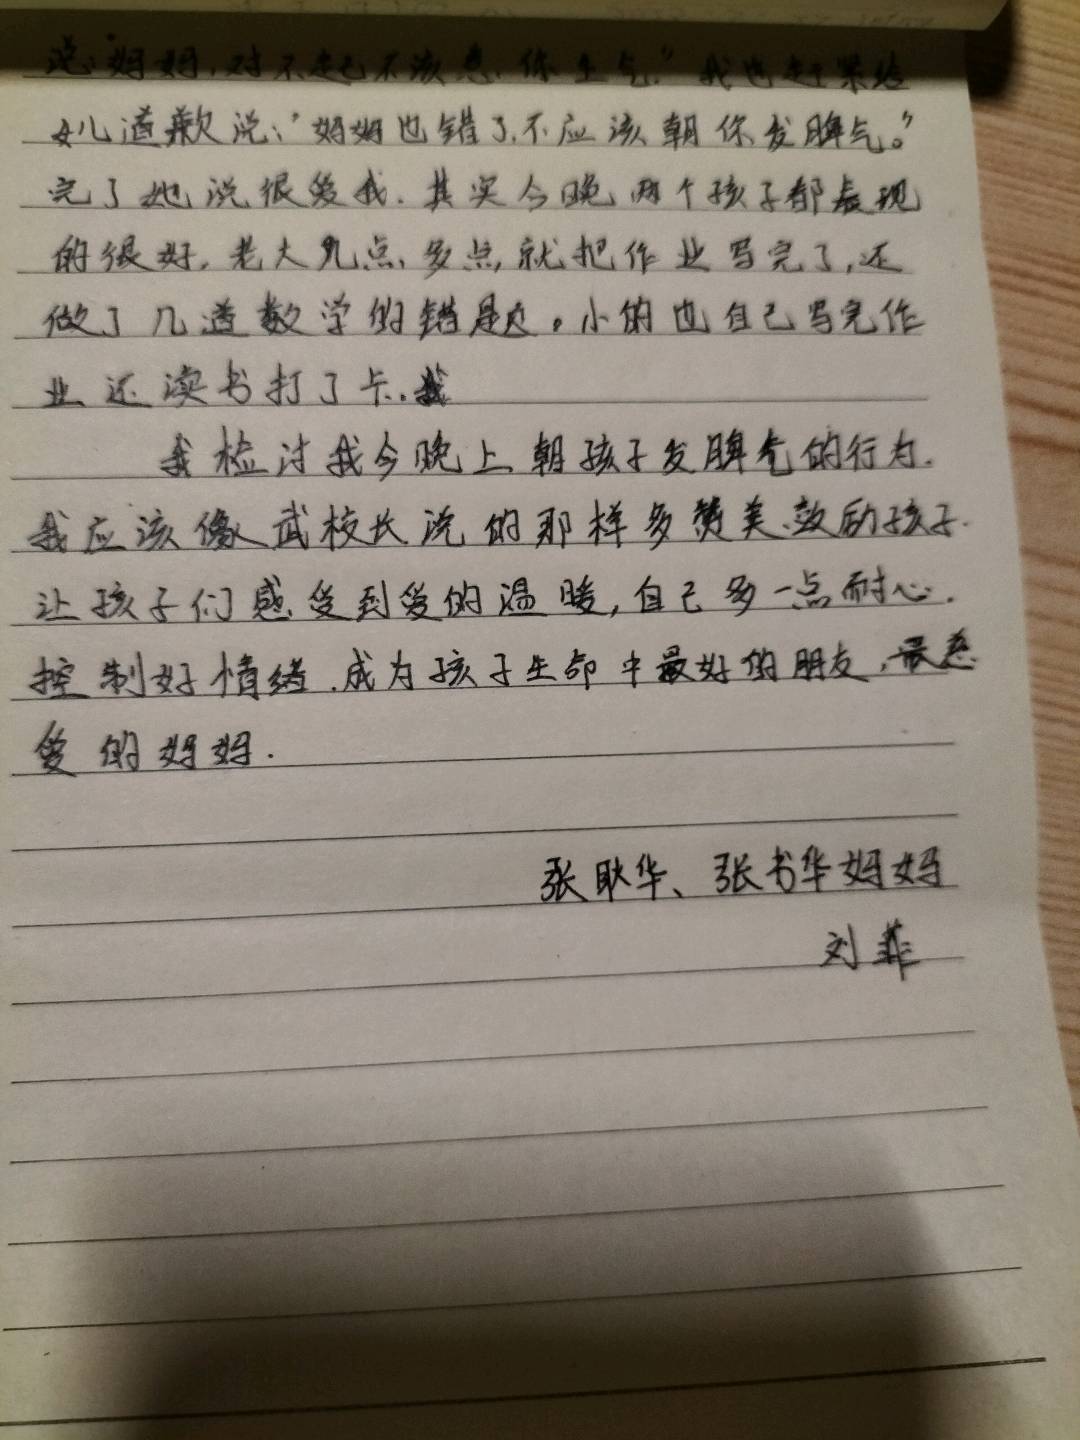 说:妈妈,对不起不该惹你生气。"我也赶紧给
女儿道歉说:"妈妈也错了,不应该朝你发脾气。"
完了她说很爱我。其实今晚两个孩子都表现
的很好,老大九点多点,就把作业写完了,还
做了几道数学的错题。小的也自己写完作
业还读书打了卡。
我检讨我今晚上朝孩子发脾气的行为.
我应该像武校长说的那样多赞美、鼓励孩子.
让孩子们感受到爱的温暖,自己多一点耐心.
控制好情绪.成为孩子生命中最好的朋友,最慈
爱的妈妈.
张耿华、张书华妈妈
刘菲